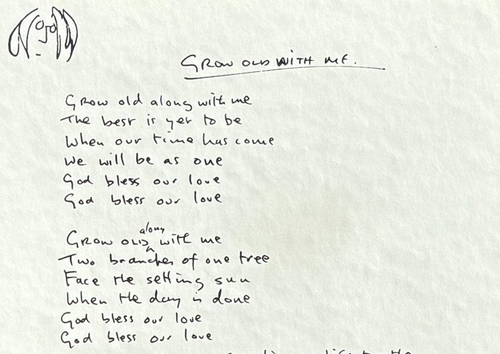 GROW OLD WITH ME.
Grow old along with me
The best is yet to be
When our time has come
We will be as one
God bless our love
God bless our love
along
Grow OLD ^ with me
Two branches of one tree
Face the setting sun
When the day is done
God bless our love
God bless our love